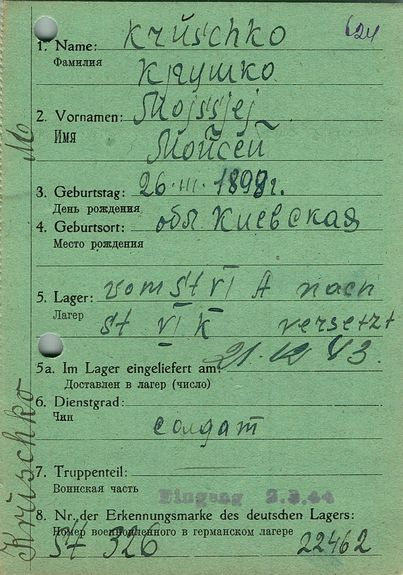 624
1. Name: Krüschko
Фамилия Крушко
2. Vornamen: Mojssjej
Имя Мойсей
3. Geburtstag: 26.III.1898г.
День рождения
4. Geburtsort: обл. Киевская
Место рождения
5. Lager: vom St VI A nach
Лагер St VI K versetzt
5a. Im Lager eingeliefert am: 21.12.43.
Доставлен в лагер (число)
6. Dienstgrad:
Чин солдат
7. Truppenteil:
Воинская часть Eingang 2.3.44
8. Nr. der Erkennungsmarke des deutschen Lagers:
Номер военнопленного в германском лагере
St 326 22462
Krüschko